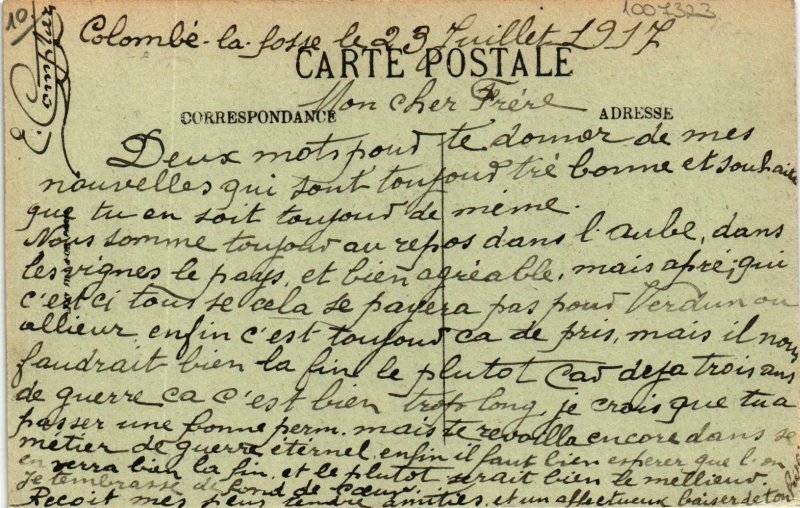 10
1007323
E. Compher
Colombé-la-fosse le 23 Juillet 1917
CARTE POSTALE
Mon cher Frére
CORRESPONDANCE
ADRESSE
Deux mots pour te donner de mes
nouvelles qui sont toujour tré bonne et souhaite
que tu en soit toujour de même.
Nous somme toujour au repos dans l'aube, dans
les vignes le pays, et bien agréable, mais apre; qui
c'est ci tout se cela se payera pas pour Verdun ou
allieur enfin c'est toujour ca de pris, mais il nous
faudrait bien la fin le plutot Car deja trois ans
de guerre ca c'est bien trop long, je crois que tu a
passer une bonne perm. mais te revoilla encore dans se
métier de guerre éternel, enfin il faut bien esperer que l'on
en verra bien la fin, et le plutot serait bien le mellieur.
Je tembrasse de fond de Cœur.
Recoit mes plus tendre amities, et un affectueux baiser de ton